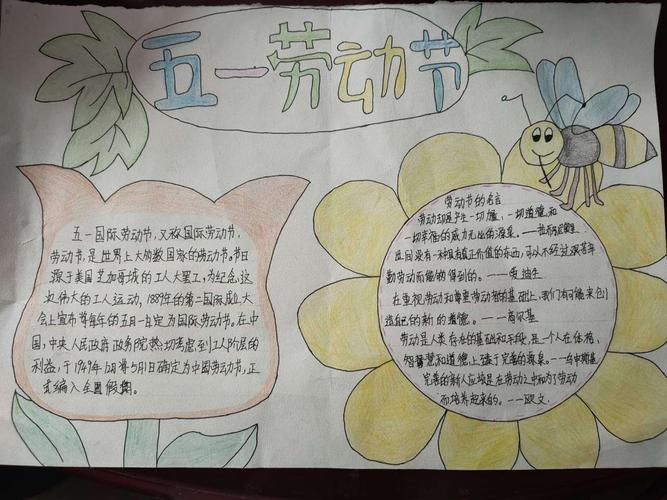 五一劳动节
五一国际劳动节,又称国际劳动节,
劳动节,是世界上大多数国家的劳动节。节日
源于美国芝加哥城的工人大罢工,为纪念这
次伟大的工人运动,1889年的第二国际成立大
会上宣布每年的五月一日定为国际劳动节。在中
国,中央人民政府政务院热切考虑到工人阶层的
利益,于1949年12月 5月1日确定为中国劳动节,正
式编入全国假期。
劳动节的名言
劳动却是产生一切力量、一切道德和
一切幸福的威力无比的源泉。——拉·乔乃尼奥里
世间没有一种具有真正价值的东西,可以不经过艰苦辛
勤劳动而能够得到的。——爱迪生
在重视劳动和尊重劳动者的基础上,我们有可能来创
造自己的新的道德。——高尔基
劳动是人类存在的基础和手段,是一个人在体格、
智慧和道德上臻于完善的源泉。——乌申斯基
完善的新人应该是在劳动之中和为了劳动
而培养起来的。——欧文